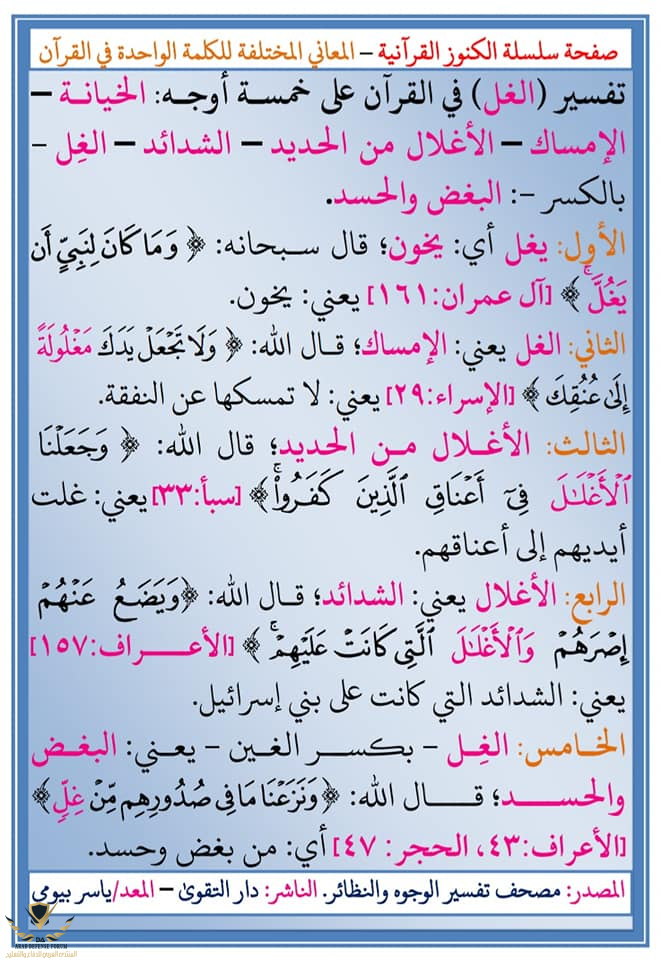 صفحة سلسلة الكنوز القرآنية – المعاني المختلفة للكلمة الواحدة في القرآن
تفسير (الغل) في القرآن على خمسة أوجه: الخيانة –
الإمساك – الأغلال من الحديد – الشدائد – الغِل –
بالكسر –: البغض والحسد.
الأول: يغل أي: يخون؛ قال سبحانه: ﴿ وَمَا كَانَ لِنَبِيٍّ أَن
يَغُلَّۚ ﴾ [آل عمران:١٦١] يعني: يخون.
الثاني: الغل يعني: الإمساك؛ قال الله: ﴿ وَلَا تَجۡعَلۡ يَدَكَ مَغۡلُولَةً
إِلَىٰ عُنُقِكَ ﴾ [الإسراء:٢٩] يعني: لا تمسكها عن النفقة.
الثالث: الأغلال من الحديد؛ قال الله: ﴿ وَجَعَلۡنَا
ٱلۡأَغۡلَٰلَ فِيٓ أَعۡنَاقِ ٱلَّذِينَ كَفَرُواْۚ ﴾ [سبأ:٣٣] يعني: غلت
أيديهم إلى أعناقهم.
الرابع: الأغلال يعني: الشدائد؛ قال الله: ﴿وَيَضَعُ عَنۡهُمۡ
إِصۡرَهُمۡ وَٱلۡأَغۡلَٰلَ ٱلَّتِي كَانَتۡ عَلَيۡهِمۡۚ ﴾ [الأعراف:١٥٧]
يعني: الشدائد التي كانت على بني إسرائيل.
الخامس: الغِل – بكسر الغين – يعني: البغض
والحسد؛ قال الله: ﴿وَنَزَعۡنَا مَا فِي صُدُورِهِم مِّنۡ غِلّٖ﴾
[الأعراف:٤٣، الحجر: ٤٧] أي: من بغض وحسد.
المصدر: مصحف تفسير الوجوه والنظائر. الناشر: دار التقوىٰ – المعد/ياسر بيومى
ARAB DEFENSE FORUM
المنتدى العربي للدفاع والتسليح